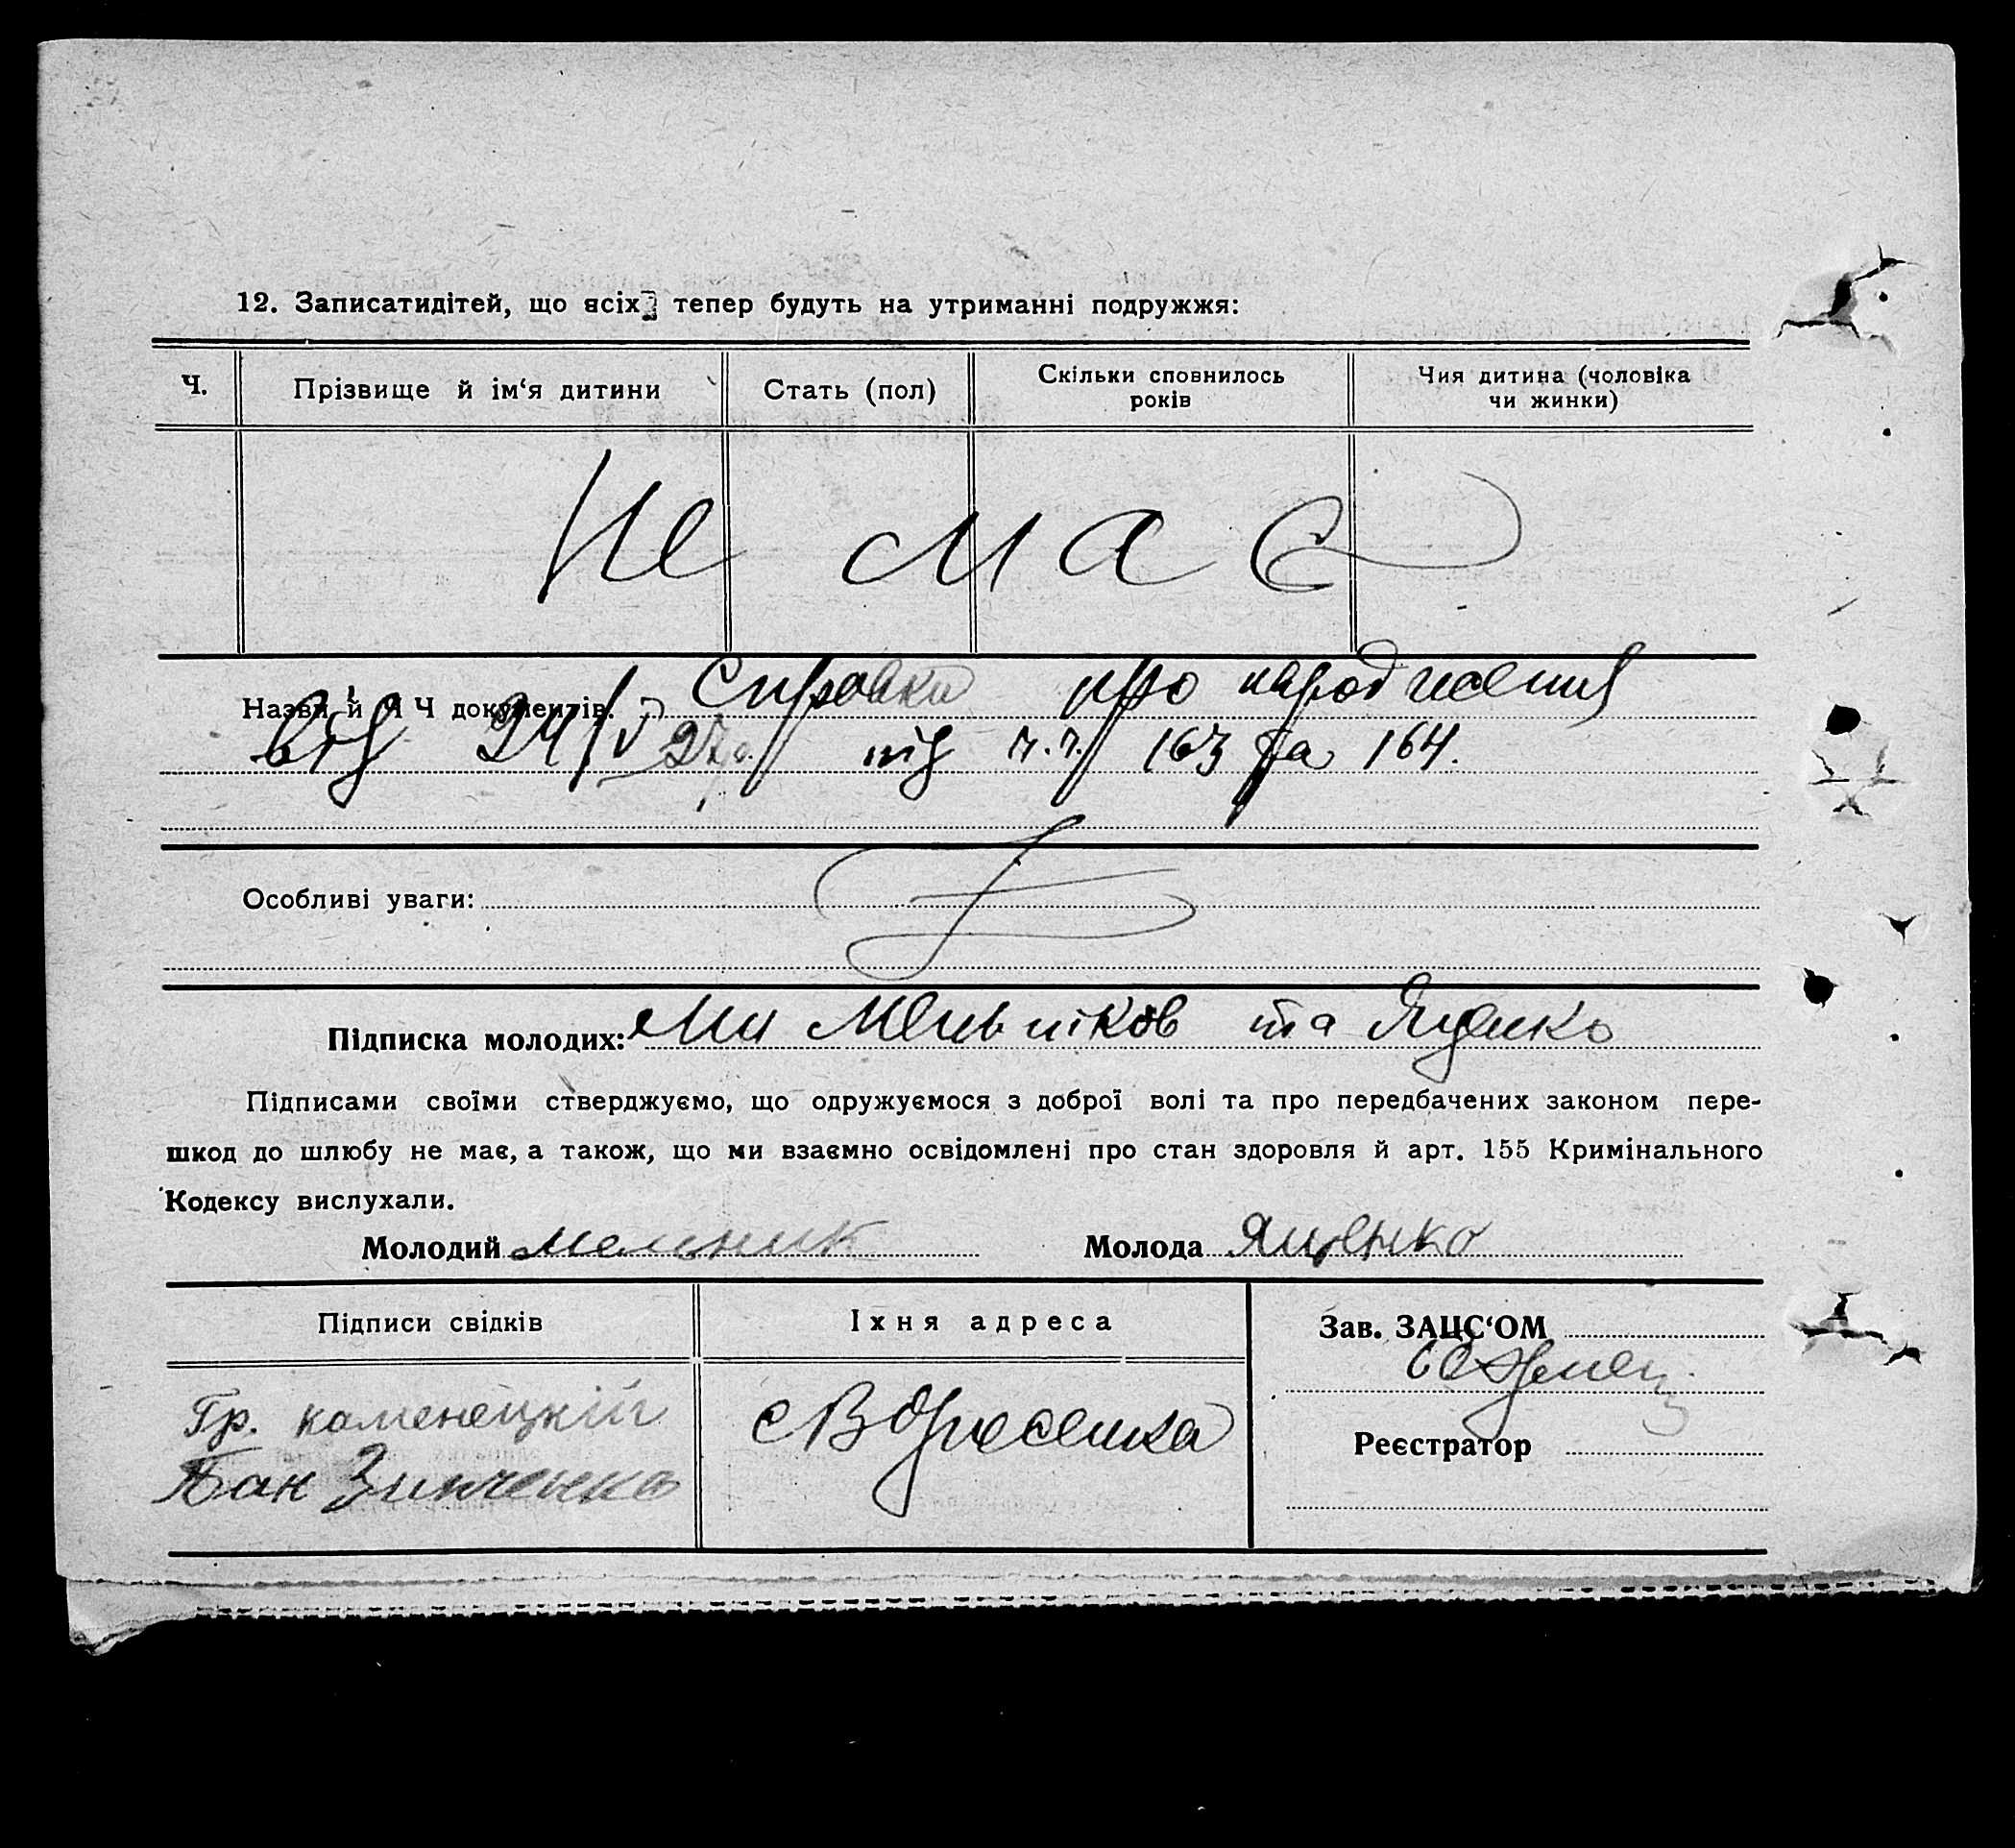 12. Записатидітей, що всіх тепер будуть на утриманні подружжя:
Ч. Прізвище й ім‘я дитини Стать (пол) Скільки сповнилось років Чия дитина (чоловіка чи жинки)
Не має
Назви й Ч Ч документів. Справки про народження
від 24/V 27р. під ч.ч. 163 та 164.
Особливі уваги:
Підписка молодих: Ми Мельніков та Яценко
Підписами своїми стверджуємо, що одружуємося з доброї волі та про передбачених законом пере-
шкод до шлюбу не має, а також, що ми взаємно освідомлені про стан здоровля й арт. 155 Кримінального
Кодексу вислухали.
Молодий Мелник Молода Яценко
Підписи свідків Їхня адреса Зав. ЗАЦС‘ОМ
Гр. каменецкій
Зинченко
Реєстратор